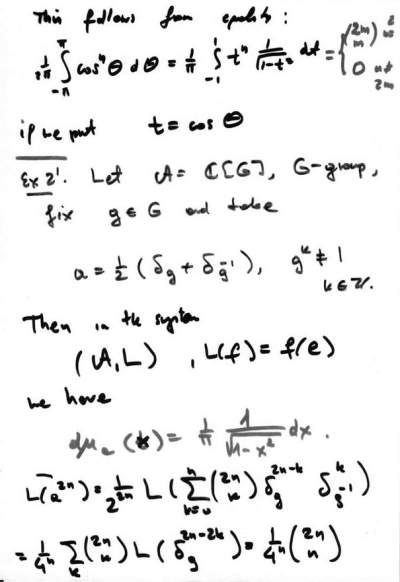 This follows from equality:
\frac{1}{2\pi} \int_{-\pi}^{\pi} \cos^n \Theta d\Theta = \frac{1}{\pi} \int_{-1}^{1} t^n \frac{1}{\sqrt{1-t^2}} dt = \begin{cases} \binom{2m}{m} \\ 0 \quad n \neq 2m \end{cases}
if we put t = cos Θ
Ex 2'. Let A = ℂ[G], G-group,
fix g ∈ G and take
a = \frac{1}{2} (δ_g + δ_{g^{-1}}), g^k ≠ 1
k ∈ ℤ.
Then in the system
(A, L), L(f) = f(e)
we have
dμ_a (x) = \frac{1}{\pi} \frac{1}{\sqrt{1-x^2}} dx.
L(a^{2n}) = \frac{1}{2^{2n}} L(\sum_{k=0}^{n} \binom{2n}{k} δ_g^{2n-k} δ_{g^{-1}}^k)
= \frac{1}{4^n} \sum_k \binom{2n}{k} L(δ_g^{2n-2k}) = \frac{1}{4^n} \binom{2n}{n}